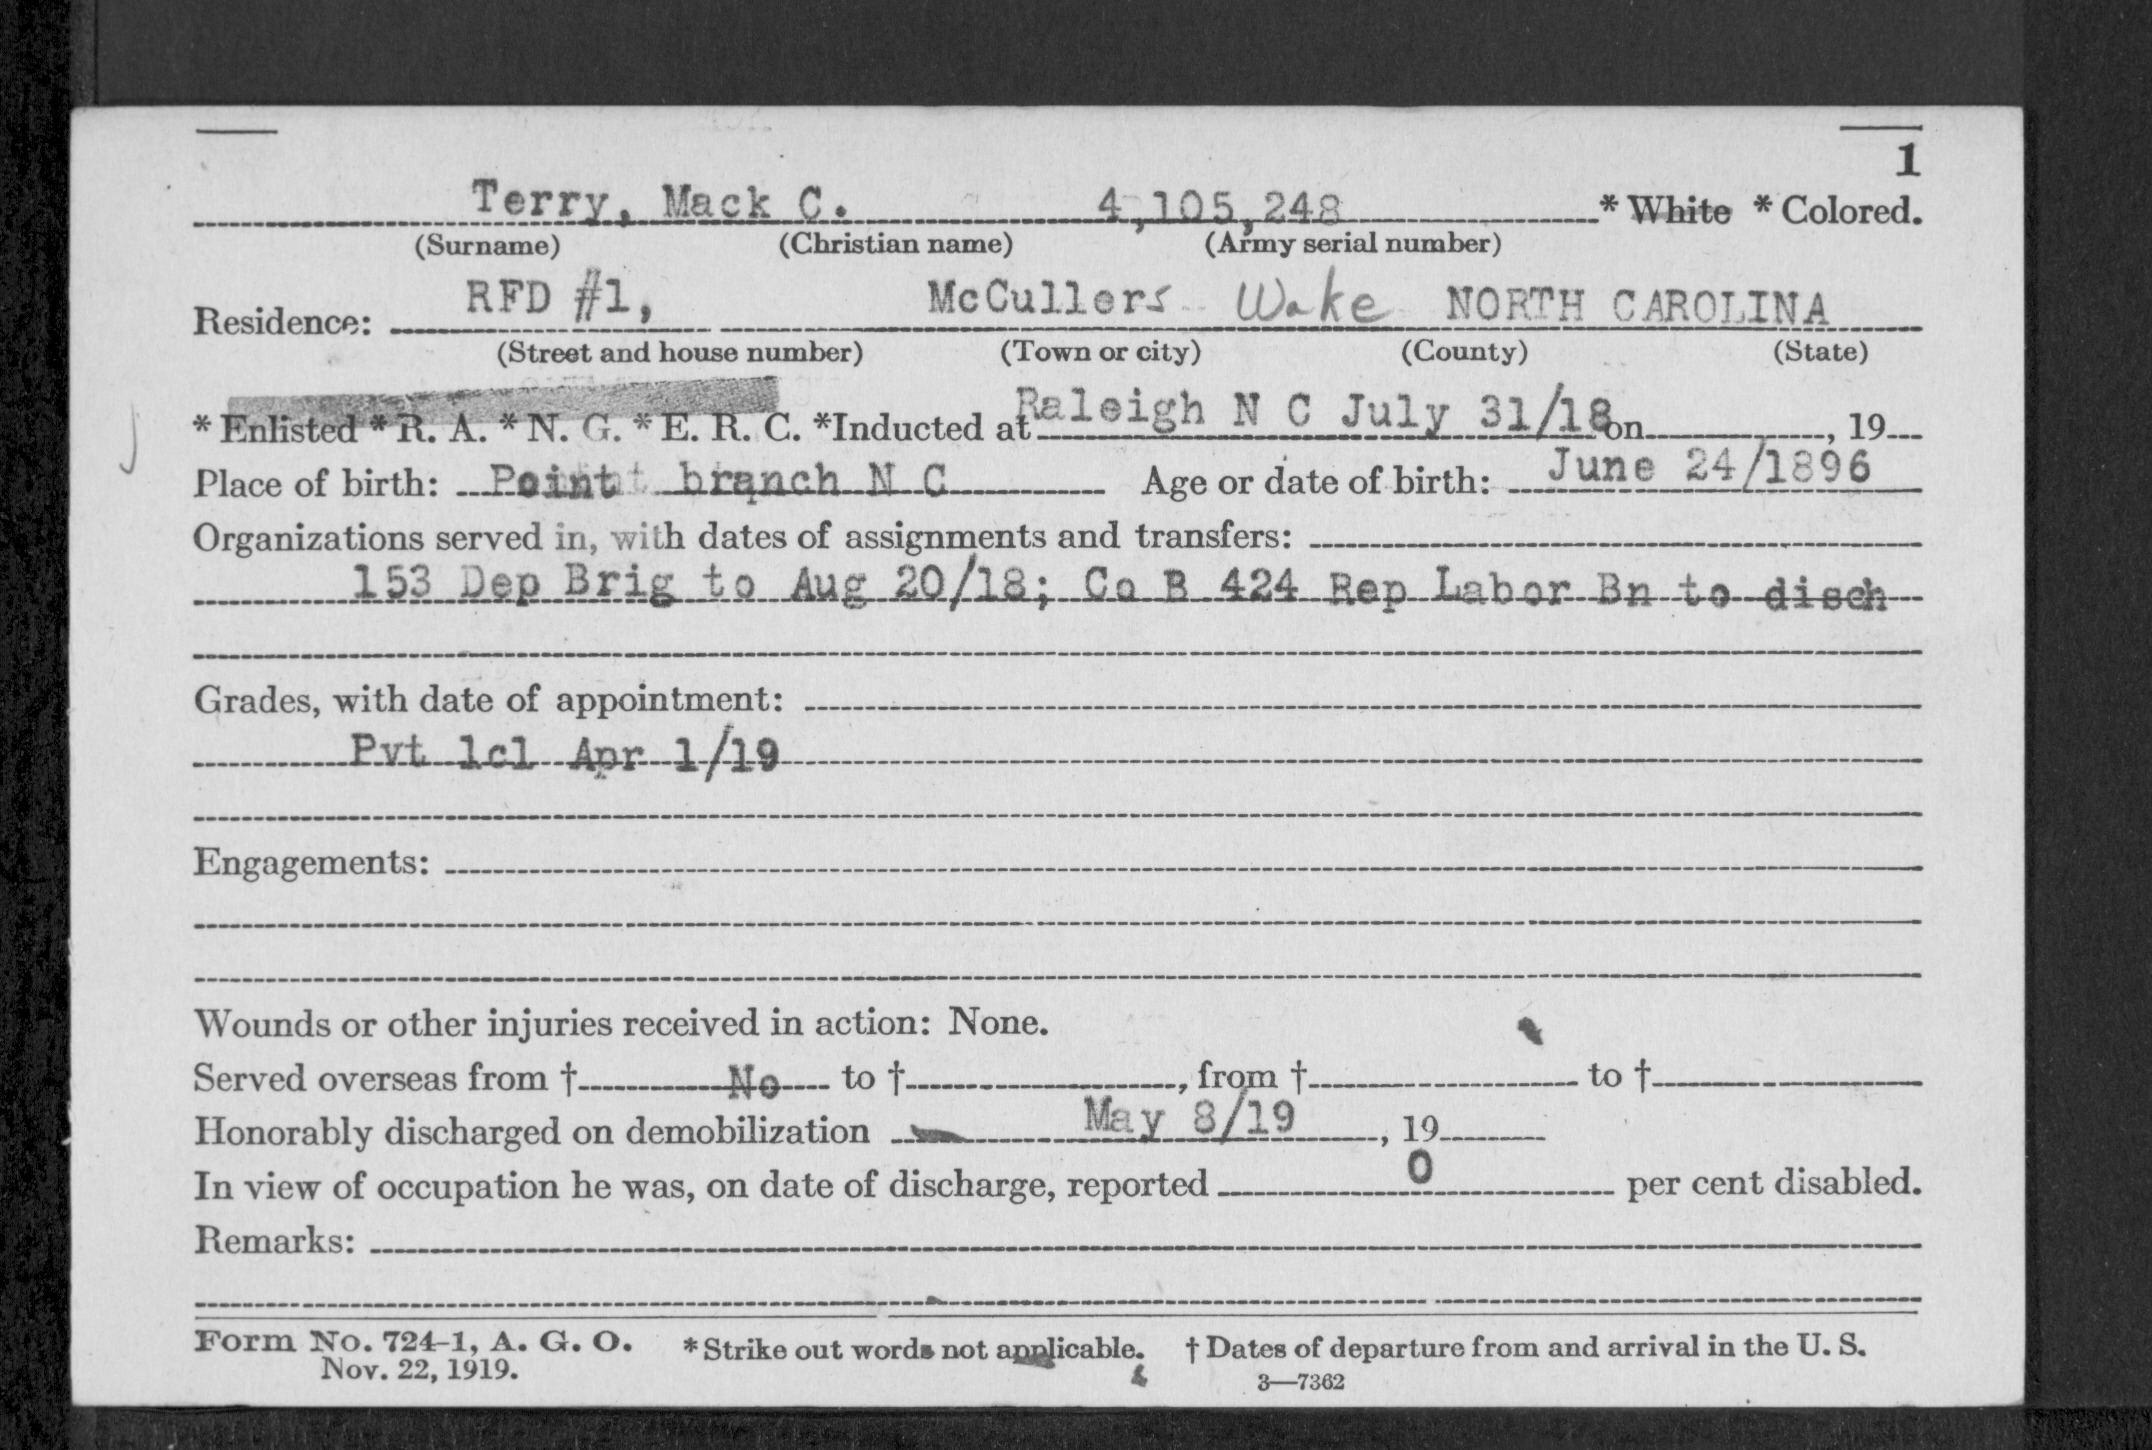 1
Terry, Mack C. 4,105,248 * White * Colored.
(Surname) (Christian name) (Army serial number)
Residence: RFD #1, McCullers Wake NORTH CAROLINA
(Street and house number) (Town or city) (County) (State)
* Enlisted * R. A. * N. G. * E. R. C. *Inducted at Raleigh N C July 31/18 on , 19
Place of birth: Point branch N C Age or date of birth: June 24/1896
Organizations served in, with dates of assignments and transfers:
153 Dep Brig to Aug 20/18; Co B 424 Rep Labor Bn to disch
Grades, with date of appointment:
Pvt 1cl Apr 1/19
Engagements:
Wounds or other injuries received in action: None.
Served overseas from † No to † , from † to †
Honorably discharged on demobilization May 8/19 , 19
In view of occupation he was, on date of discharge, reported 0 per cent disabled.
Remarks:
Form No. 724-1, A. G. O. * Strike out words not applicable. † Dates of departure from and arrival in the U. S.
Nov. 22, 1919. 3—7362